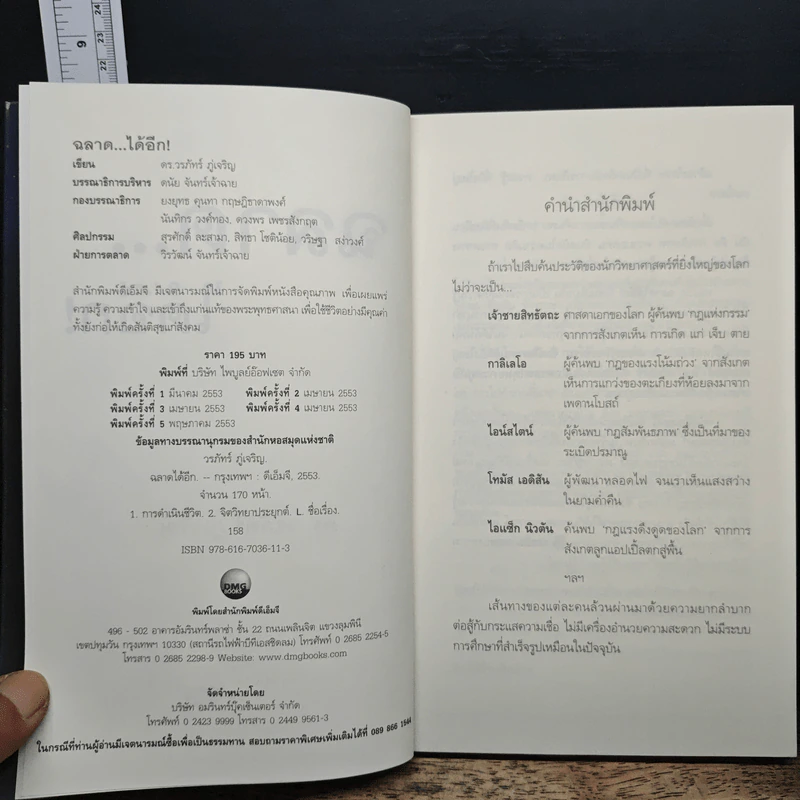 9
24
23
22
ฉลาด...ได้อีก!
เขียน ดร.วรภัทร์ ภู่เจริญ
บรรณาธิการบริหาร ดนัย จันทร์เจ้าฉาย
กองบรรณาธิการ ยงยุทธ คุนทา กฤษฎิธาดาพงศ์
นันทิกร วงค์ทอง, ดวงพร เพชรสังกฤต
ศิลปกรรม สุรศักดิ์ ละสามา, สิทธา โชติน้อย, วริษฐา สง่าวงค์
ฝ่ายการตลาด วิรวัฒน์ จันทร์เจ้าฉาย
สำนักพิมพ์ดีเอ็มจี มีเจตนารมณ์ในการจัดพิมพ์หนังสือคุณภาพ เพื่อเผยแพร่
ความรู้ ความเข้าใจ และเข้าถึงแก่นแท้ของพระพุทธศาสนา เพื่อใช้ชีวิตอย่างมีคุณค่า
ทั้งยังก่อให้เกิดสันติสุขแก่สังคม
ราคา 195 บาท
พิมพ์ที่ บริษัท ไพบูลย์อ๊อฟเซต จำกัด
พิมพ์ครั้งที่ 1 มีนาคม 2553 พิมพ์ครั้งที่ 2 เมษายน 2553
พิมพ์ครั้งที่ 3 เมษายน 2553 พิมพ์ครั้งที่ 4 เมษายน 2553
พิมพ์ครั้งที่ 5 พฤษภาคม 2553
ข้อมูลทางบรรณานุกรมของสำนักหอสมุดแห่งชาติ
วรภัทร์ ภู่เจริญ.
ฉลาดได้อีก. -- กรุงเทพฯ : ดีเอ็มจี, 2553.
จำนวน 170 หน้า.
1. การดำเนินชีวิต. 2. จิตวิทยาประยุกต์. L. ชื่อเรื่อง.
158
ISBN 978-616-7036-11-3
DMG
BOOKS
พิมพ์โดยสำนักพิมพ์ดีเอ็มจี
496 - 502 อาคารอัมรินทร์พลาซ่า ชั้น 22 ถนนเพลินจิต แขวงลุมพินี
เขตปทุมวัน กรุงเทพฯ 10330 (สถานีรถไฟฟ้าบีทีเอสชิดลม) โทรศัพท์ 0 2685 2254-5
โทรสาร 0 2685 2298-9 Website: www.dmgbooks.com
จัดจำหน่ายโดย
บริษัท อมรินทร์บุ๊คเซ็นเตอร์ จำกัด
โทรศัพท์ 0 2423 9999 โทรสาร 0 2449 9561-3
ในกรณีที่ท่านผู้อ่านมีเจตนารมณ์ซื้อเพื่อเป็นธรรมทาน สอบถามราคาพิเศษเพิ่มเติมได้ที่ 089 866 1644
คำนำสำนักพิมพ์
ถ้าเราไปสืบค้นประวัติของนักวิทยาศาสตร์ที่ยิ่งใหญ่ของโลก
ไม่ว่าจะเป็น...
เจ้าชายสิทธัตถะ ศาสดาเอกของโลก ผู้ค้นพบ 'กฎแห่งกรรม'
จากการสังเกตเห็น การเกิด แก่ เจ็บ ตาย
กาลิเลโอ ผู้ค้นพบ 'กฎของแรงโน้มถ่วง' จากสังเกต
เห็นการแกว่งของตะเกียงที่ห้อยลงมาจาก
เพดานโบสถ์
ไอน์สไตน์ ผู้ค้นพบ 'กฎสัมพันธภาพ' ซึ่งเป็นที่มาของ
ระเบิดปรมาณู
โทมัส เอดิสัน ผู้พัฒนาหลอดไฟ จนเราเห็นแสงสว่าง
ในยามค่ำคืน
ไอแซ็ก นิวตัน ค้นพบ 'กฎแรงดึงดูดของโลก' จากการ
สังเกตลูกแอปเปิ้ลตกสู่พื้น
ฯลฯ
เส้นทางของแต่ละคนล้วนผ่านมาด้วยความยากลำบาก
ต่อสู้กับกระแสความเชื่อ ไม่มีเครื่องอำนวยความสะดวก ไม่มีระบบ
การศึกษาที่สำเร็จรูปเหมือนในปัจจุบัน